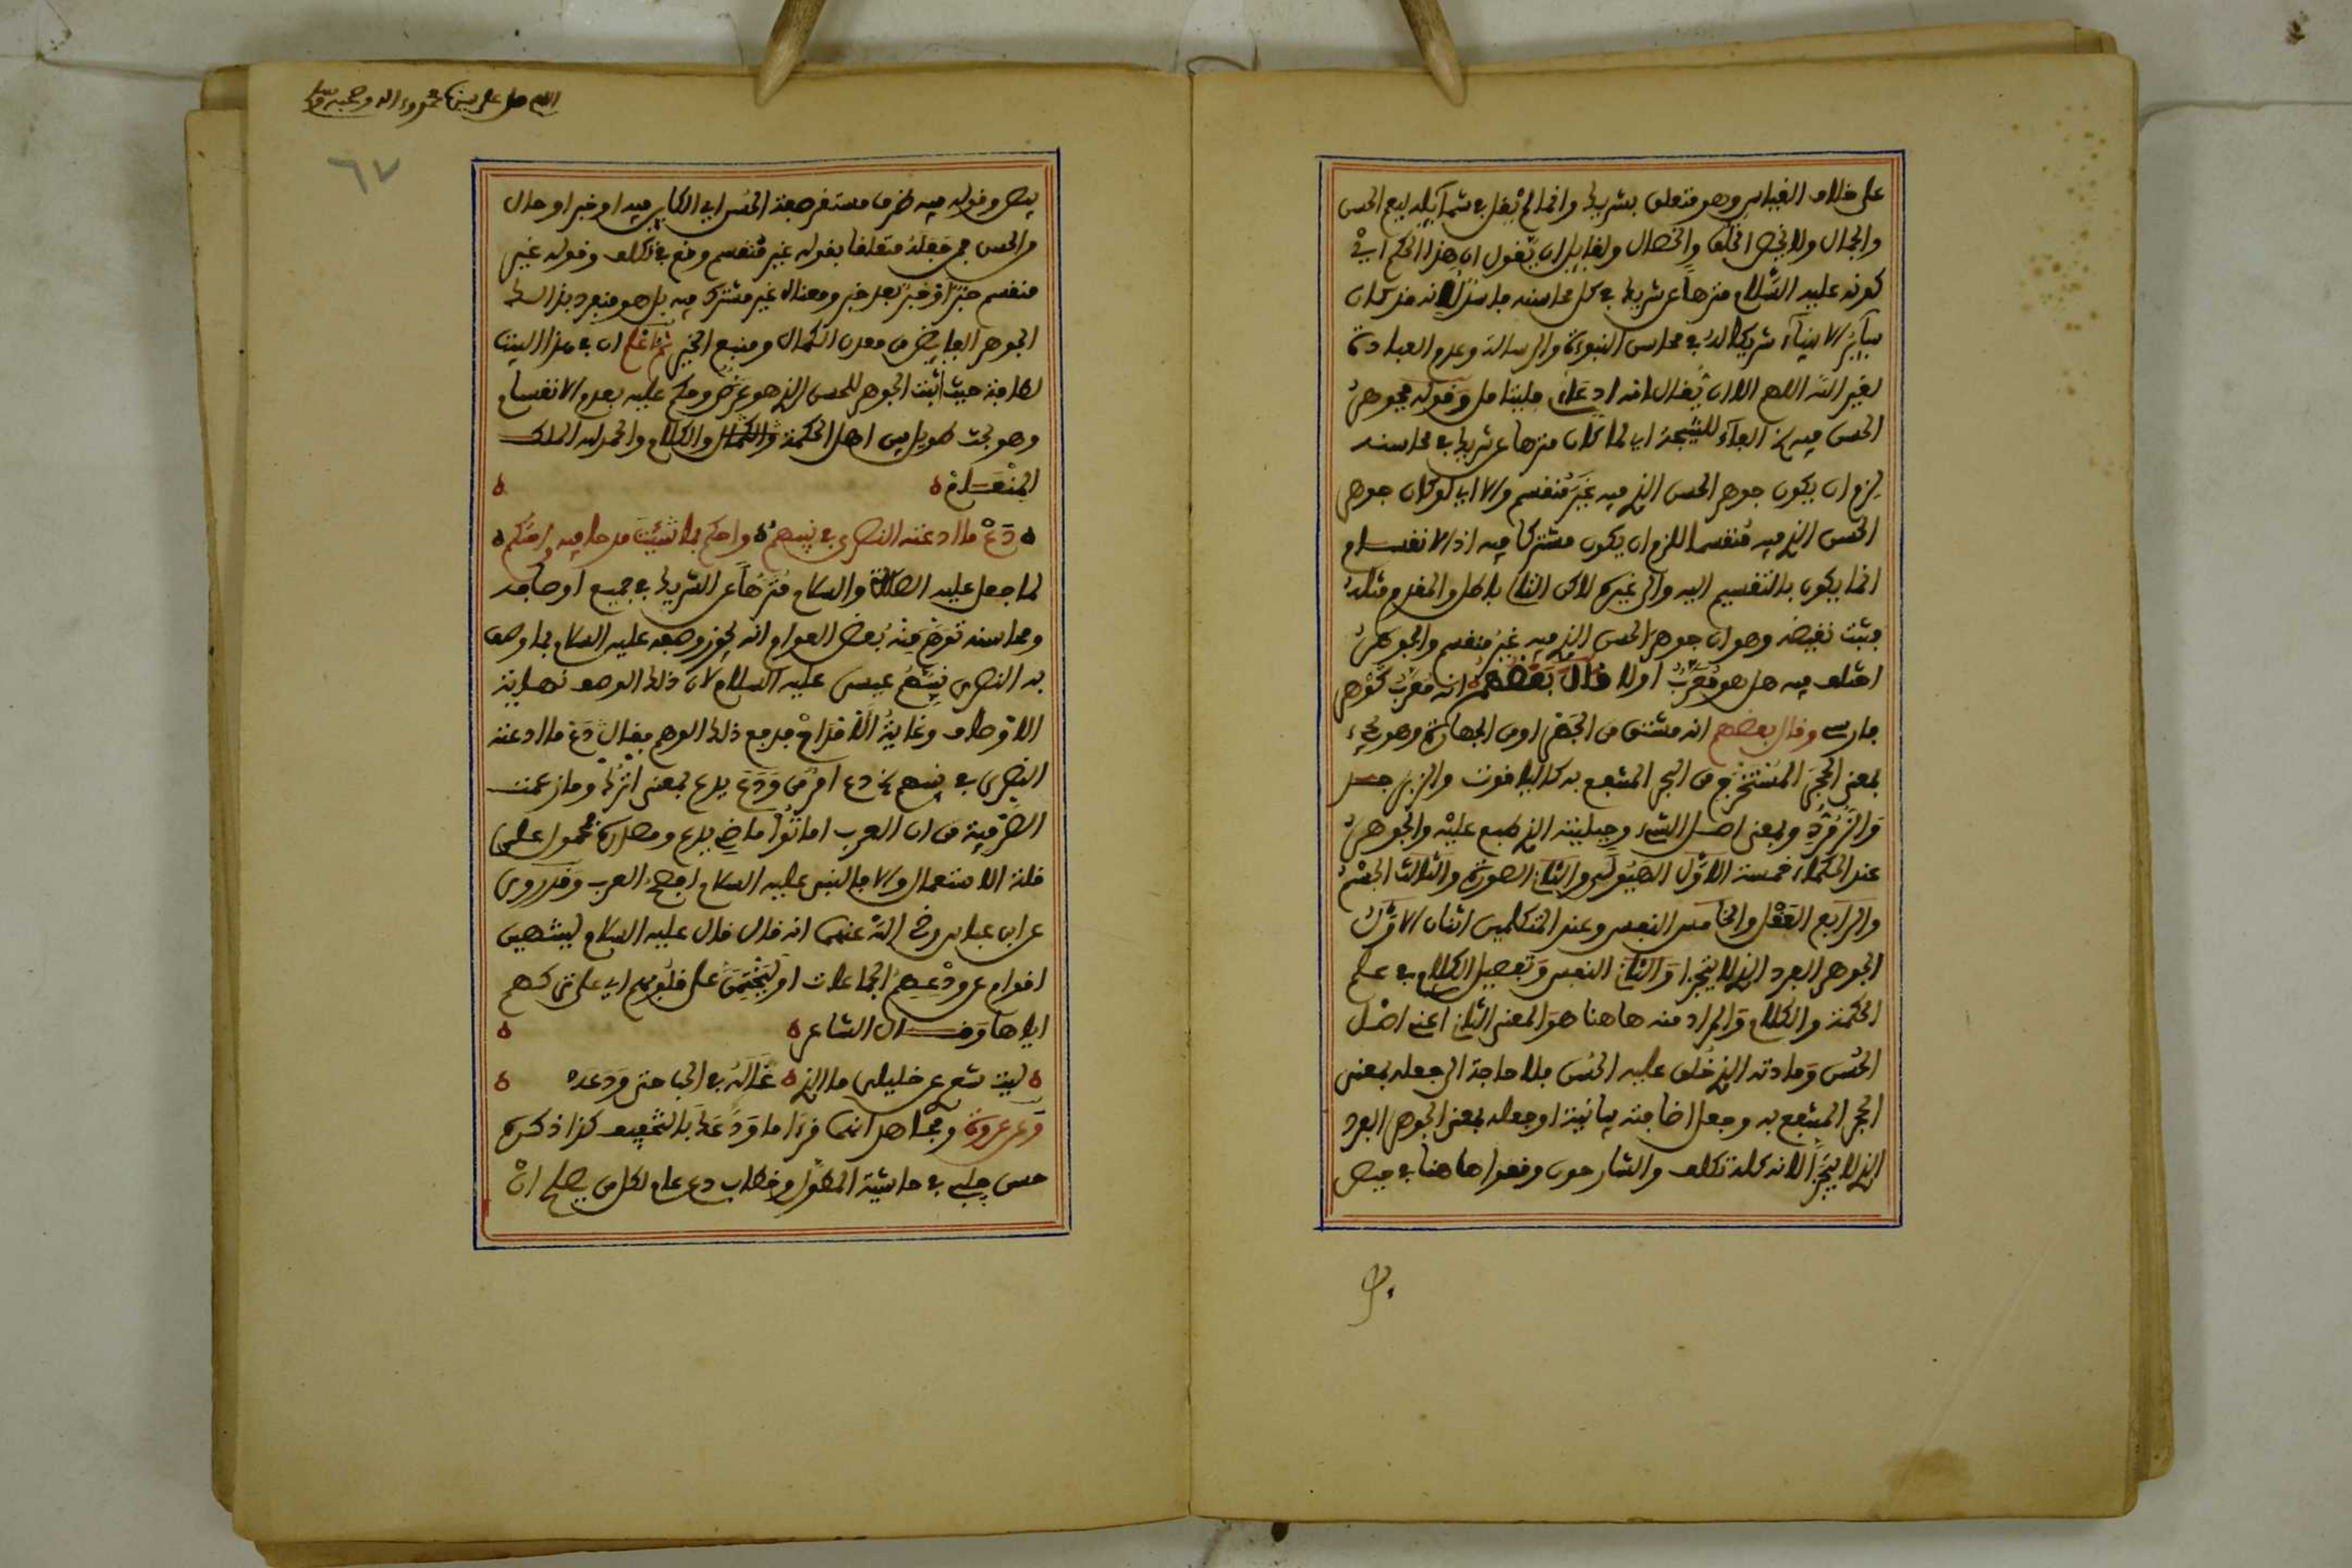 على خلاف القياس وهو متعلق بشريك وانما لم يقل في شمآئله ليعم الحسن
والجمال ولا يخص الخلق والخصال ولقايل ان يقول ان هذا الحكم اي في
كونه عليه السّلام منزها عن شريك في كل محاسنه فاسد لانه قد كان
سآئر الانبيآء شريكا له في محاسن النبوءة والرسالة وعدم العبادة
لغير الله اللهم الا ان يقال انه ادعاء فليتامل وقوله فجوهر
الحسن فيه الخ الفآء للنتيجة اي لما كان منزها عن شريك في محاسنه
لزم ان يكون جوهر الحسن الذي فيه غير منقسم والا اي لو كان جوهر
الحسن الذي فيه منقسما للزم ان يكون مشتركا فيه اذ الانقسام
انما يكون بالتقسيم اليه والى غيره لاكن التالي باطل والمقدم مثله
فثبت نقيضه وهو ان جوهر الحسن الذي فيه غير منقسم والجوهر
اختلف فيه هل هو معرب اولا فقال بعضهم انه معرب كوهر
فارسي وقال بعضهم انه مشتق من الجهر او من الجهارة وهو يجيء
بمعنى الحجر المستخرج من البحر المنتفع به كالياقوت والزبرجد
والزمرد وبمعنى اصل الشيء وجبليته الذي طبع عليه والجوهر
عند الحكماء خمسة الاوّل الهيولى والثاني الصورة والثالث الجسم
والرابع العقل والخامس النفس وعند المتكلمين اثنان الاوّل
الجوهر الفرد الذي لا يتجزا والثاني النفس وتفصيل الكلام في علم
الحكمة والكلام والمراد منه هاهنا هو المعنى الثاني اعني اصل
الحسن ومادته الذي خلق عليه الحسن فلا حاجة الى جعله بمعنى
الحجر المنتفع به وجعل اضافته بيانية او جعله بمعنى الجوهر الفرد
الذي لا يتجزّا لانه كله تكلف والشارحون وقعوا هاهنا في حيص
اللهم صل على سيدنا محمد وءاله وصحبه وسلم
٦٧
بيص وقوله فيه ظرف مستقر صفة الحسن اي الكاين فيه او خبر او حال
من الحسن فمن جعله متعلقا بقوله غير منقسم وقع في تكلف وقوله غير
منقسم خبر او خبر بعد خبر ومعناه غير مشترك فيه بل هو منفرد بذالك
الجوهر الفايض من معدن الكمال ومنبع الخير ثم اعلم ان في هذا البيت
لطافة حيث اثبت الجوهر للحسن الذي هو عرض وحكم عليه بعدم الانقسام
وهو بحث طويل بين اهل الحكمة والكمال والكلام والحمد لله الملك
المنعام
دع ما ادعته النصرى في نبيهم واحكم بما شئت مدحا فيه واحتكم
لما جعل عليه الصلاة والسلام منزها عن الشريك في جميع اوصافه
ومحاسنه توهم منه بعض العوام انه يجوز وصفه عليه السلام بما وصف
به النصرى نبيهم عيسى عليه السلام لان ذلك الوصف نهاية
الاوصاف وغاية الاقداح فدفع ذلك الوهم بقال دع ما ادعته
النصرى في نبيهم الخ دع امر من ودع يدع بمعنى اترك وما زعمت
الصرفية من ان العرب اماتوا ماضي يدع ومصدره محمول على
قلة الاستعمال والا فالنبي عليه السلام افصح العرب وقد روي
عن ابن عباس رضي الله عنهما انه قال قال عليه السلام لينتهين
اقوام عن ودعهم الجماعات او ليختمن على قلوبهم اي على تركهم
اياها وقال الشاعر
ليت شعري عن خليلي ما الذي غاله في الحب حتى ودعه
وعن عروة ومجاهد انهما قرءا ما ودعك بالتخفيف كذا ذكره
حسن جلبي في حاشية المطول وخطاب دع عام لكل من يصلح ان